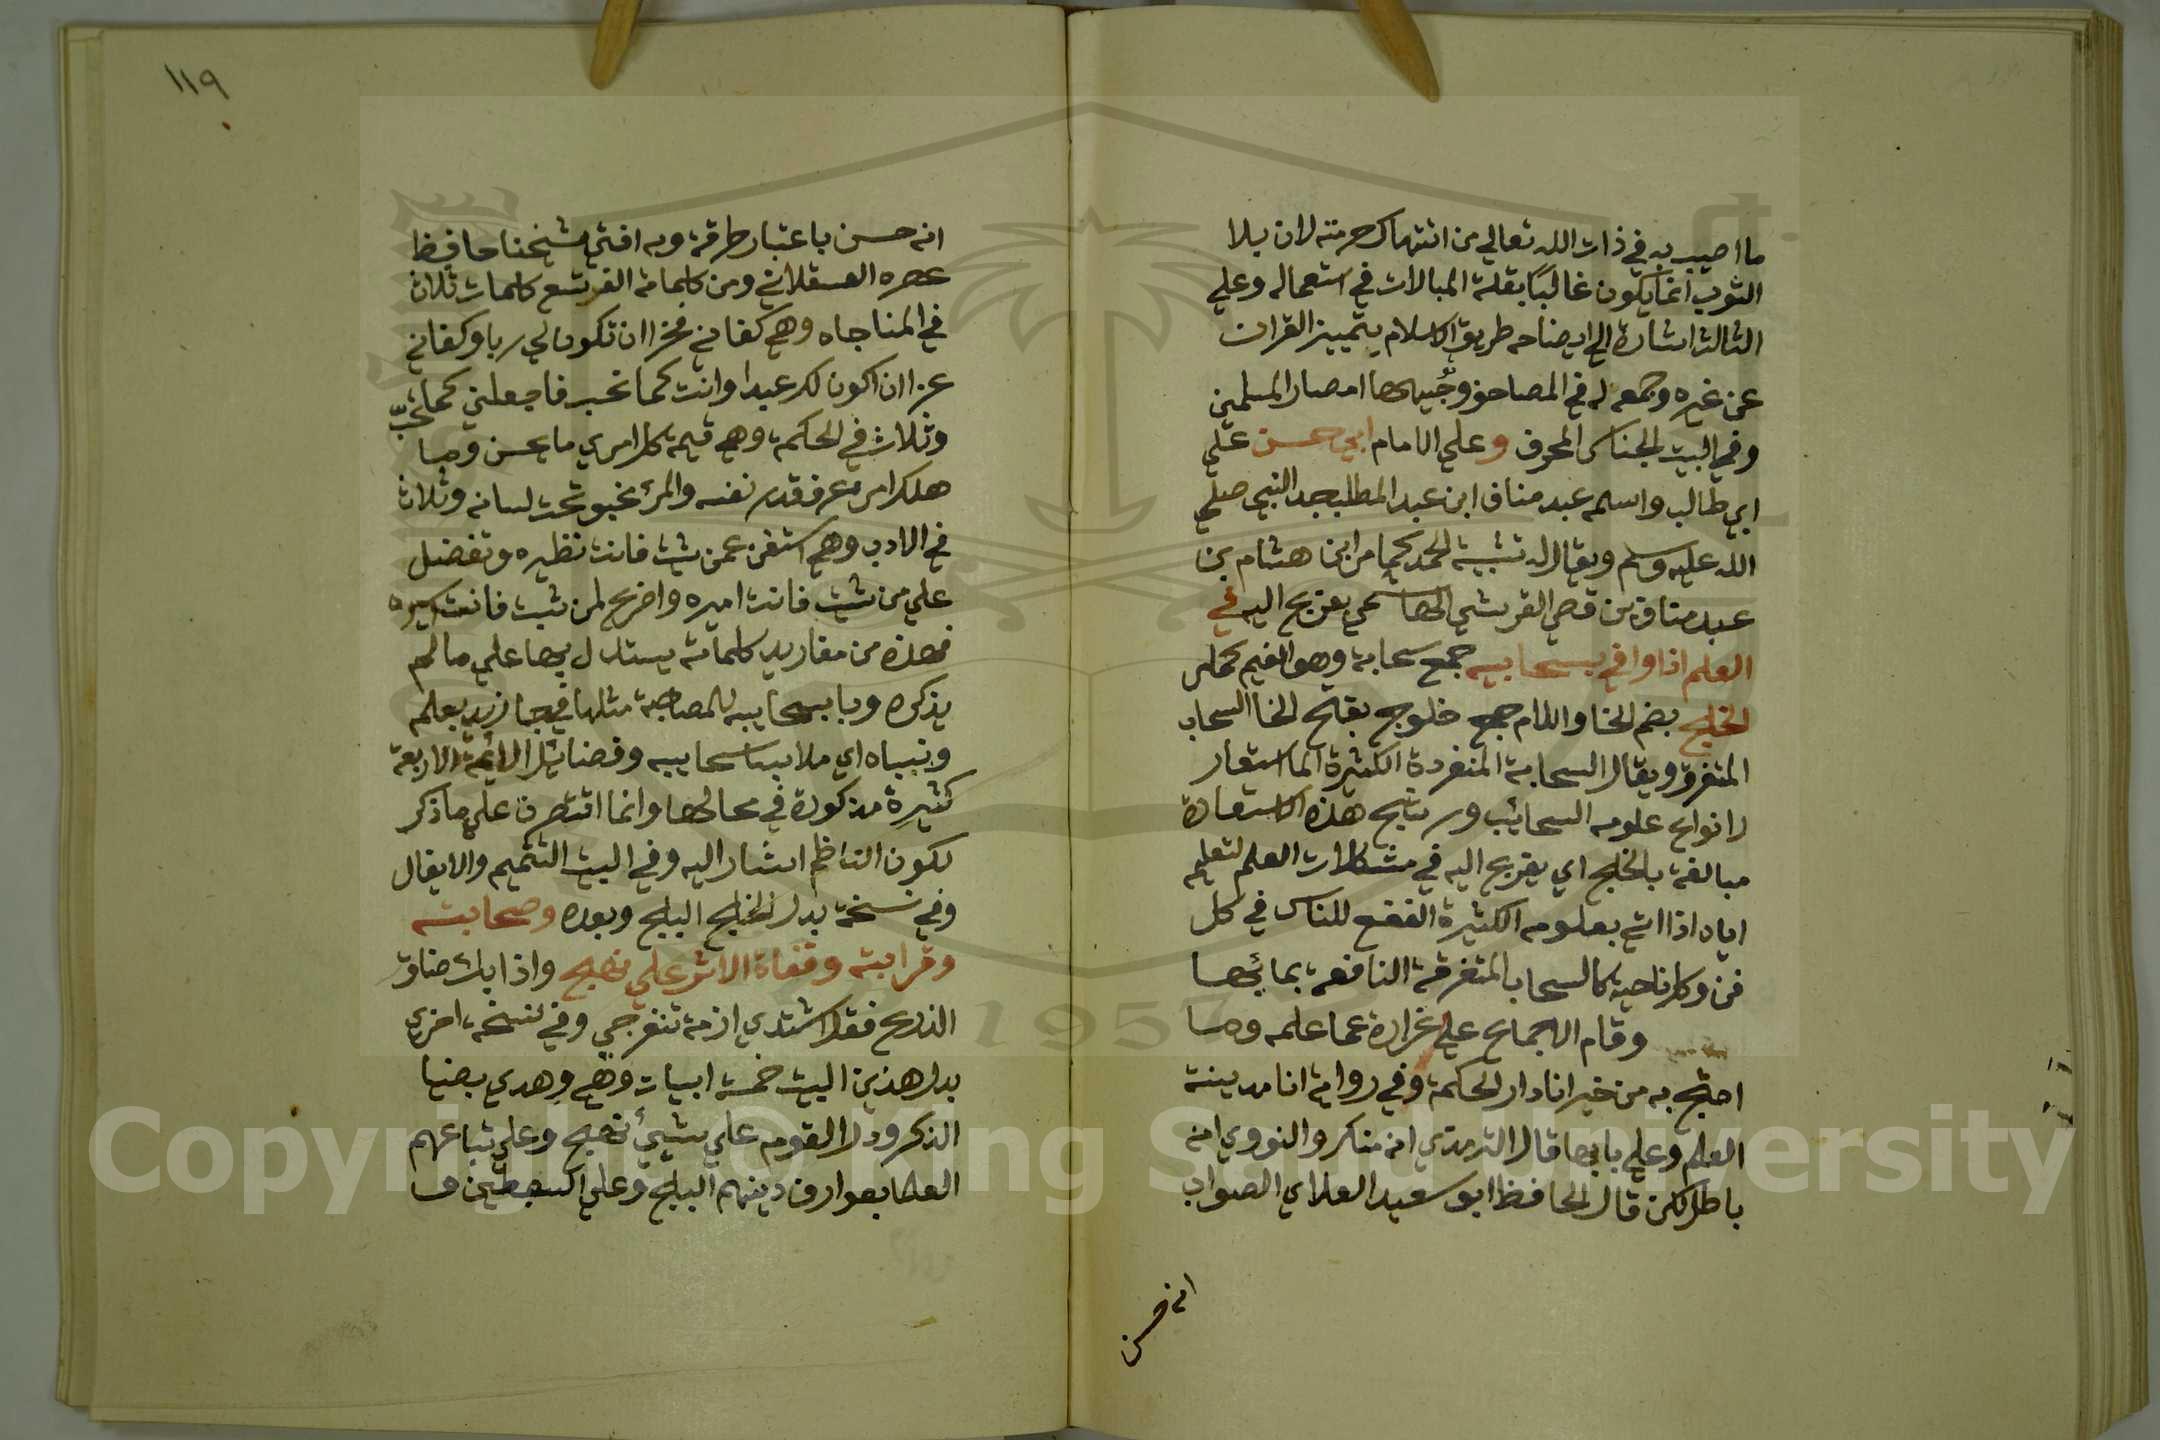 ما اصيب به في ذات الله تعالي من انتهاك حرمته لان بلا
الثوب انما يكون غالبا بقلة المبالات في استعماله وعلي
الثالث اشارة الي ايضاحه طريق الاسلام بتمييز القران
عن غيره وجمعه له في المصاحف امصار المسلمين
وفي البيت الجناس المحرف وعلي الامام ابي حسن علي
ابي طالب واسمه عبد مناف ابن عبد المطلب جد النبي صلي
الله عليه وسلم ويقال له شيبة الحمد بن هشام بن
عبد مناف بن قصي القريشي الهاشمي يفزع اليه في
العلم اذا وافي بسحايبه جمع سحابة وهو الغيم كمل
الخلج بضم الخا واللام جمع خلوج بفتح الخا السحاب
المتفرق ويقال السحابة المنفردة الكثيرة الما استعار
لانواع علومه السحائب ورشح هذه الاستعارة
مبالغة بالخلج اي يفزع اليه في مشكلات العلم لتعليم
اياه اذا اتي بعلومه الكثيرة النفع للناس في كل
فن وكل ناحية كالسحاب المتفرقة النافعة بمائها
وقام الاجماع علي غزارة علمه وما
احتج به من خبر انا دار الحكمة وفي رواية انا مدينة
العلم وعلي بابها قال الترمذي انه منكر والنووي انه
باطل لكن قال الحافظ ابو سعيد العلاي الصواب
انه حسن
١١٩
انه حسن باعتبار طرقه وبه افتي شيخنا حافظ
عصره العسقلاني ومن كلماته الغر تسع كلمات ثلاث
في المناجاه وهي كفاني فخرا ان تكون لي ربا وكفاني
عزا ان اكون لك عبدا وانت كما تحب فاجعلني كما تحب
وثلاث في الحكمة وهي قيمة كل امري ما يحسن وما
هلك امر عرف قدر نفسه والمرئ مخبو تحت لسانه وثلاث
في الادب وهي استغن عمن شيت فانت نظيره وتفضل
علي من شيت فانت اميره واضرع لمن شيت فانت اسيره
فهذه من مفاريد كلماته يستدل بها علي ما لم
يذكره وبا بسحايبه للمصاحبة مثلها في جا زيد بعلمه
وثيابه اي ملابسا سحايبه وفضايل الائمة الاربعة
كثيرة مذكورة في محالها وانما اقتصرت علي ما ذكر
لكون الناظم اشار اليه وفي البيت التتميم والايغال
وفي نسخة بدل الخلج البلج وبعده وصحابته
وقرابته وقفاة الاثر علي نهج واذا بك ضاق
الذرع فقل اشتدي ازمة تنفرجي وفي نسخة اخري
بدل هذين البيت خمسة ابيات وهي وهدي بضيا
الذكر ودلا القوم علي شيئ نهج وعلي تباعهم
العلما بعوارف دينهم البلج وعلي السبطين